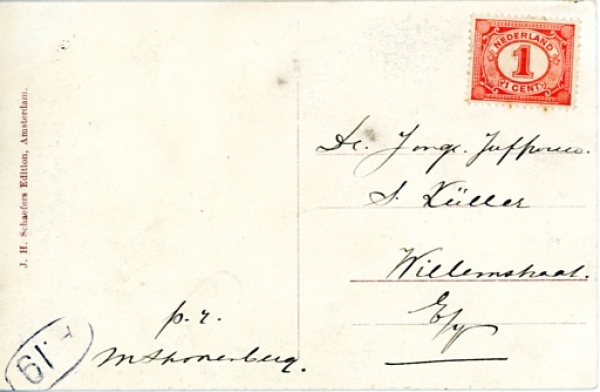 NEDERLAND
1
1 CENT
J. H. Schaefers Edition, Amsterdam.
De. Jonge. Juffrouw.
S. Küller
Willemstraat.
p. r.
19